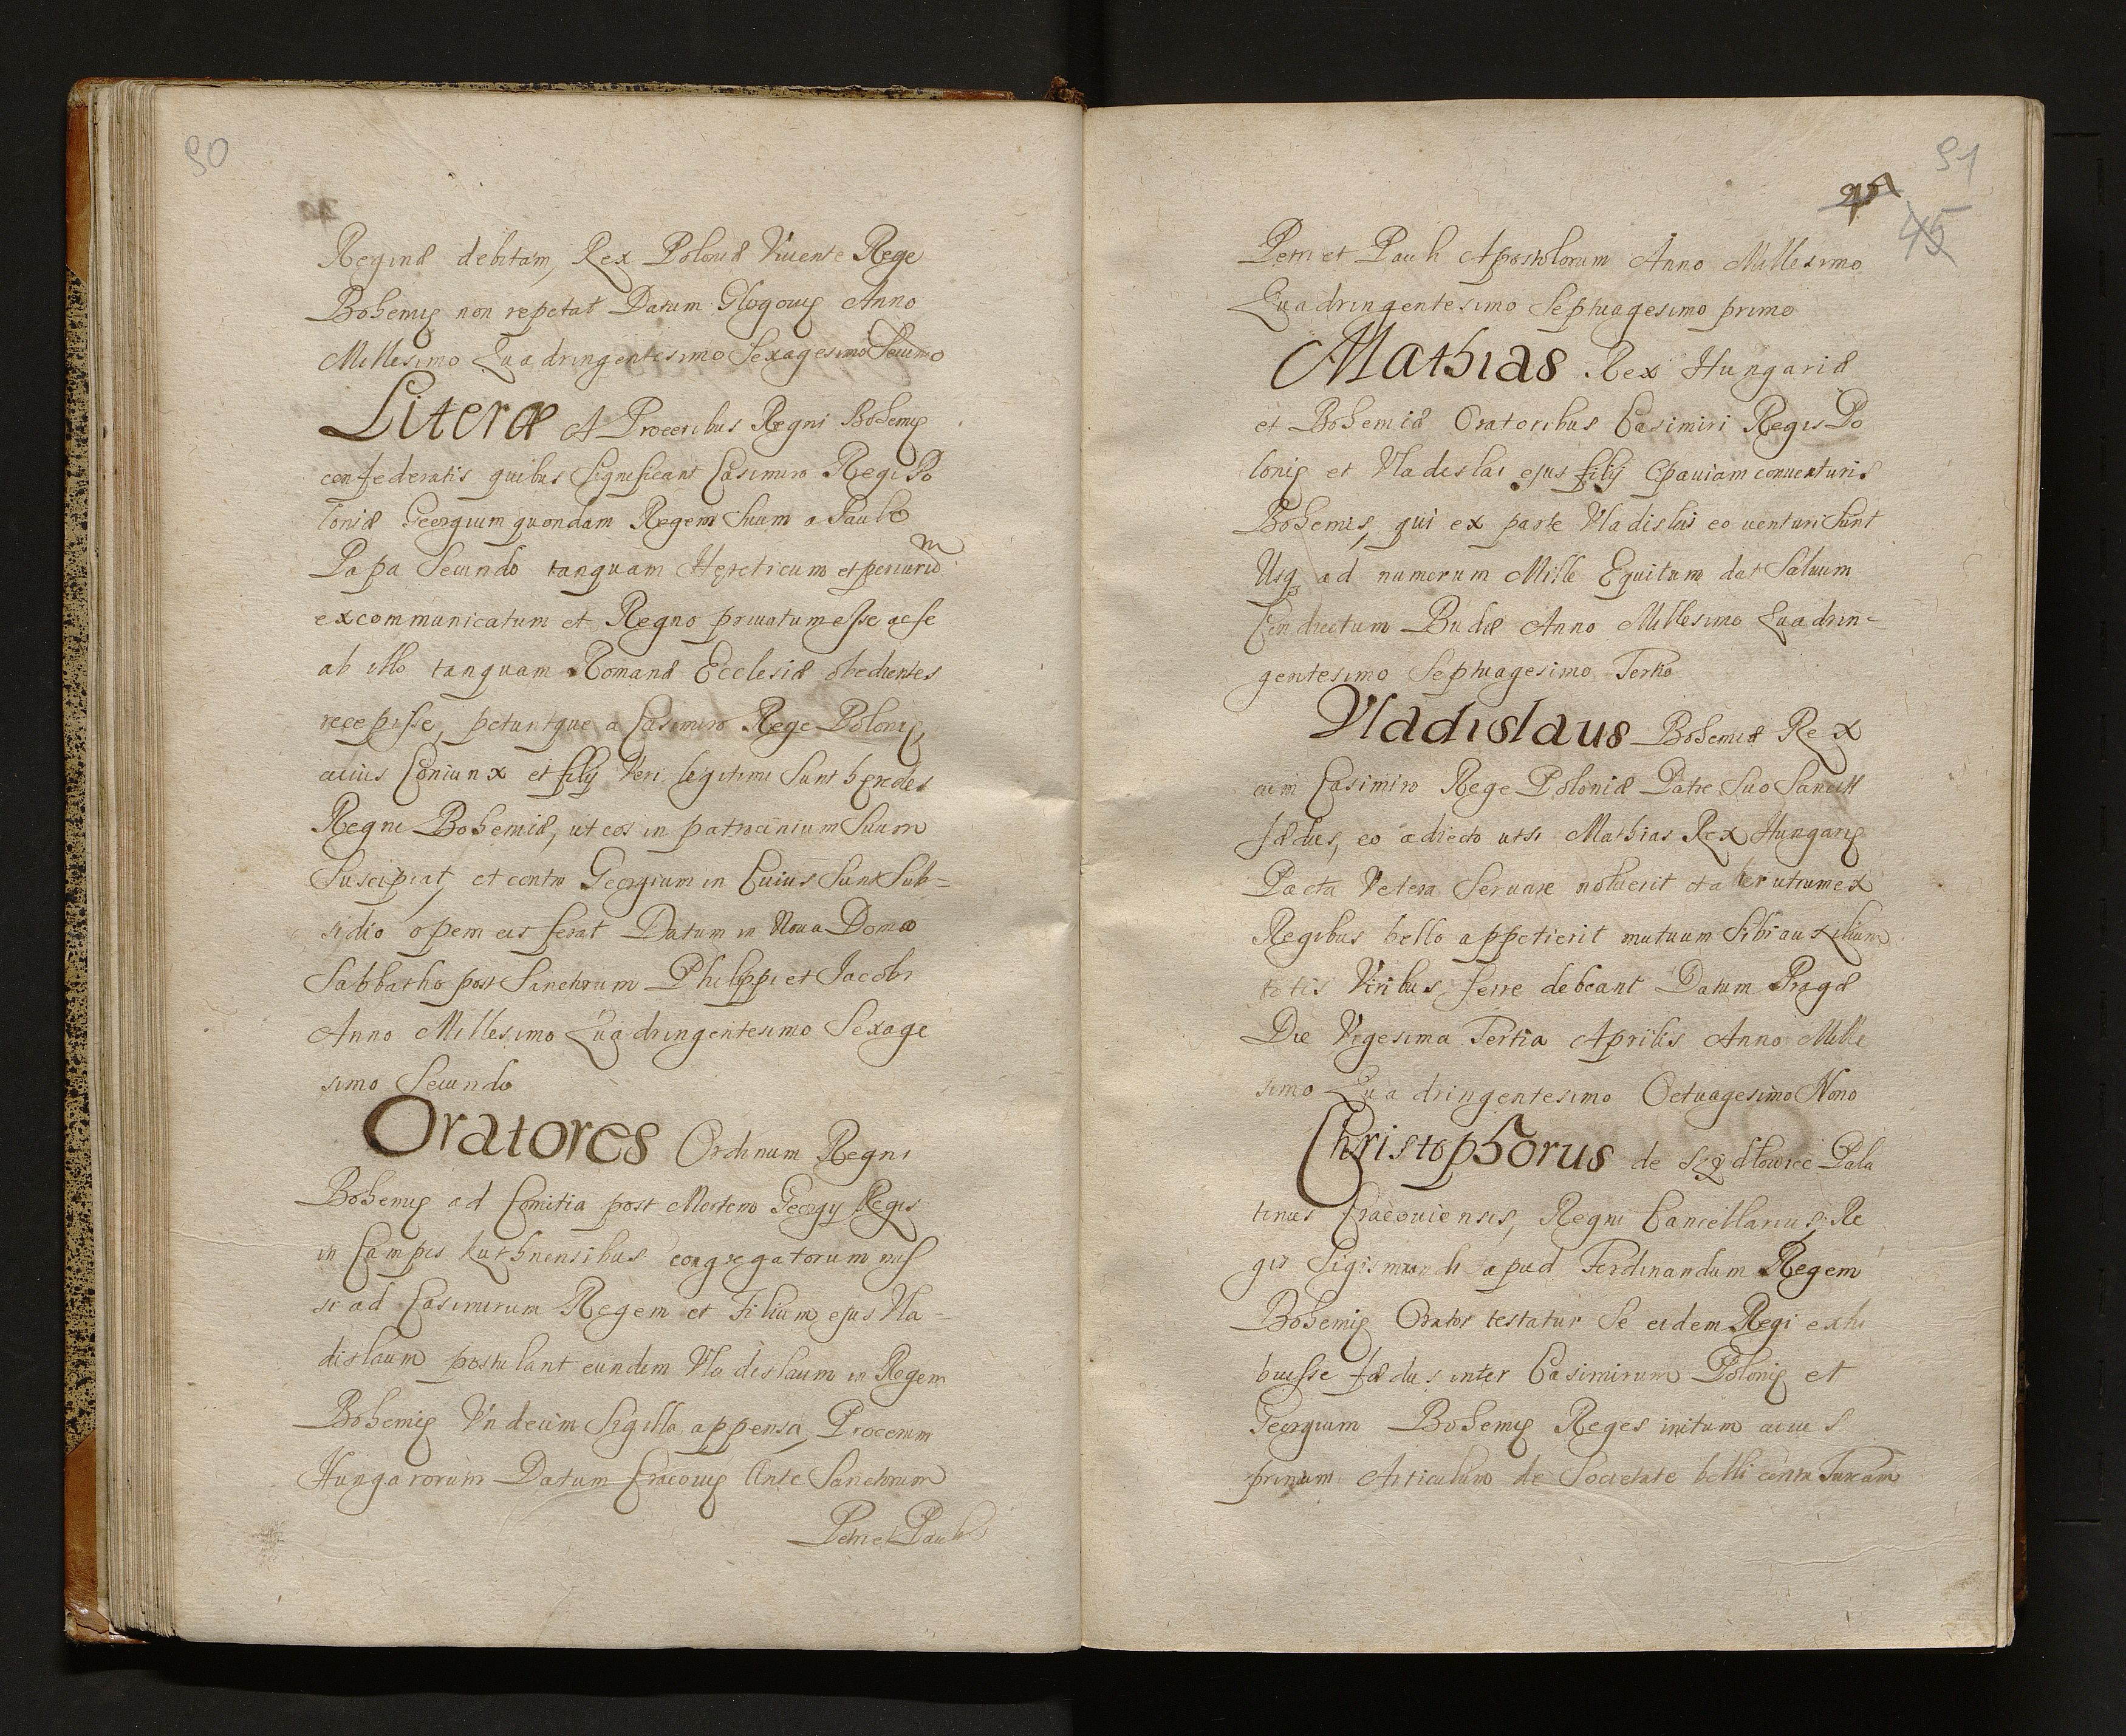 90
Reginæ debitam, Rex Poloniæ Viuente Rege
Bohemię non repetat Datum Glogouię Anno
Millesimo Quadringentesimo Sexagesimo Secundo
Literæ A Proceribus Regni Bohemię
confederatis quibus Significant Casimiro Regi Po
loniæ Georgium quondam Regem Suum a Paulo
Papa Secundo tanquam Hęreticum et periurum
excommunicatum et Regno priuatum esse ac se
ab illo tanquam Romanæ Ecclesiæ obedientes
recepisse, petuntque a Casimiro Rege Polonię,
cuius Coniunx et filij Veri legitimi Sunt hęredes
Regni Bohemiæ, ut eos in patrocinium Suum
Suscipiat, et contra Georgium in Cuius Sunt Sub=
sidio opem eis ferat Datum in Noua Domo
Sabbatho post Sanctorum Philippi et Jacobi
Anno Millesimo Quadringentesimo Sexage
simo Secundo
Oratores Ordinum Regni
Bohemię ad Comitia post Mortem Georgij Regis
in Campis Kuthnensibus congregatorum mis
si ad Casimirum Regem et Filium ejus Vla=
dislaum postulant eundem Vladislaum in Regem
Bohemię Vndecim Sigilla appensa, Procerum
Hungarorum Datum Cracouię Ante Sanctorum
Petri et Pauli
91
45
Petri et Pauli Apostolorum Anno Millesimo
Quadringentesimo Septuagesimo primo
Mathias Rex Hungariæ
et Bohemiæ Oratoribus Casimiri Regis Po
lonię et Vladislai ejus filij Opauiam conuenturis
Bohemis, qui ex parte Vladislai eo uenturi Sunt
Usq ad numerum Mille Equitum dat Saluum
Conductum Budæ Anno Millesimo Quadrin=
gentesimo Septuagesimo Tertio
Vladislaus Bohemiæ Rex
cum Casimiro Rege Poloniæ Patre Suo Sancit
fædus, eo adiecto ut si Mathias Rex Hungarię
Pacta Vetera Seruare noluerit et alterutrum ex
Regibus bello appetierit mutuum Sibi auxilium
totis Viribus ferre debeant Datum Pragæ
Die Vigesima Tertia Aprilis Anno Mille
simo Quadringentesimo Octuagesimo Nono
Christophorus de Szydłowiec Pala
tinus Cracouiensis, Regni Cancellarius, Re
gis Sigismundi apud Ferdinandum Regem
Bohemię Orator testatur Se eidem Regi exhi
buisse fædus inter Casimirum Polonię et
Georgium Bohemię Reges initum cuius
primum Articulum de Societate belli contra Turcam